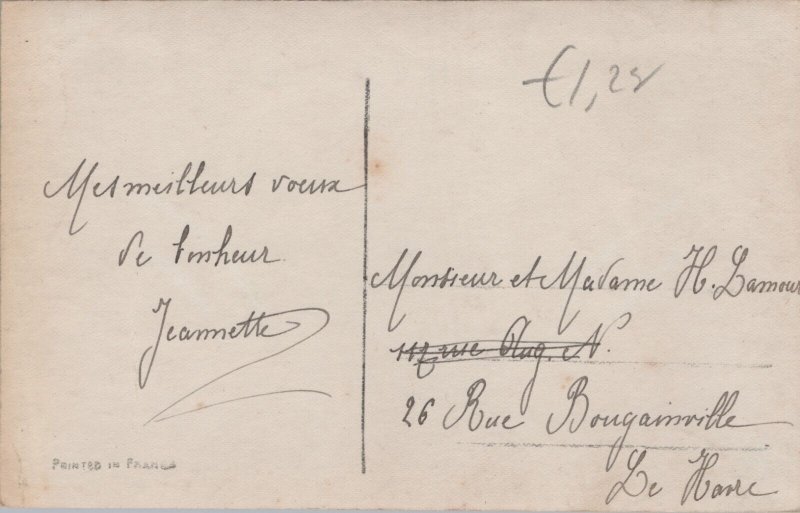 €1,25
Mes meilleurs voeux
de bonheur
Jeannette
PRINTED IN FRANCE
Monsieur et Madame H. Lamour
117 rue Aug. N.
26 Rue Bougainville
Le Havre